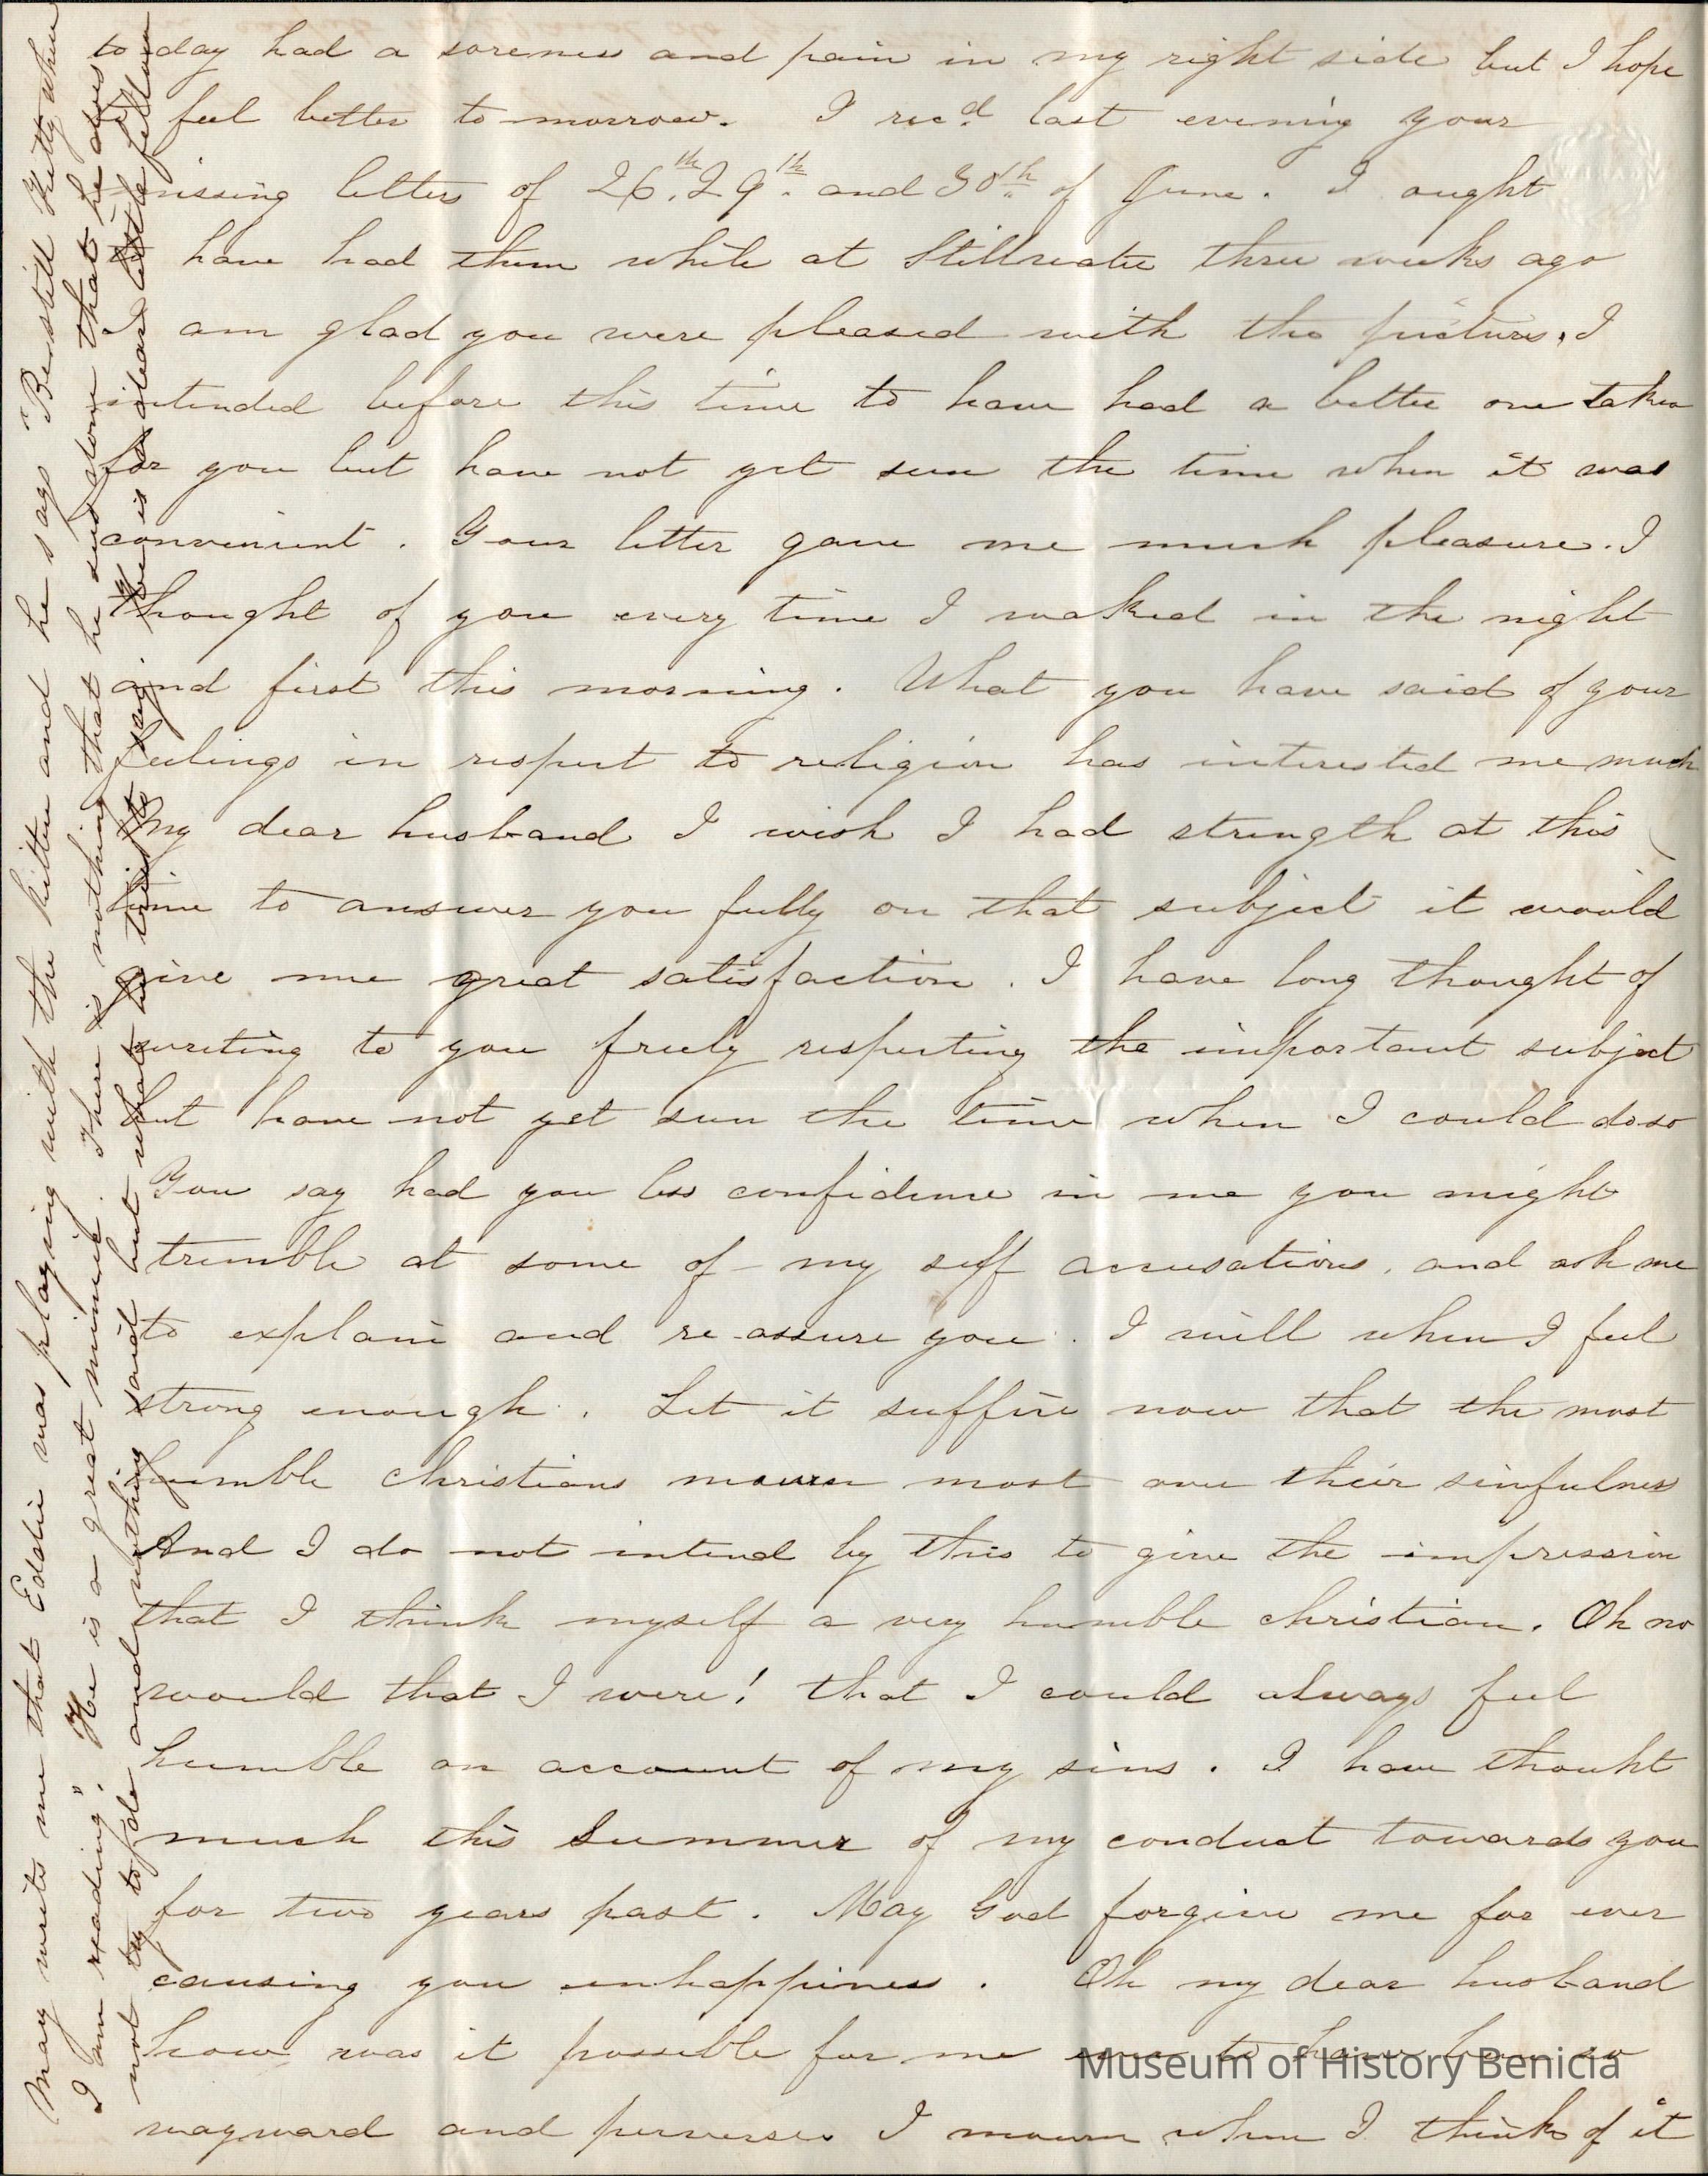 to day had a soreness and pain in my right side but I hope
to feel better to morrow. I recd. last evening your
missing letters of 26th. 29th. and 30th. of June. I ought
to have had them while at Stillwater three weeks ago
I am glad you were pleased with the picture, I
intended before this time to have had a better one taken
for you but have not yet seen the time when it was
convenient. Your letter gave me much pleasure. I
thought of you every time I waked in the night
and first this morning. What you have said of your
feelings in respect to religion has interested me much
My dear husband I wish I had strength at this
time to answer you fully on that subject it would
give me great satisfaction. I have long thought of
writing to you freely respecting the important subject
but have not yet seen the time when I could do so
You say had you less confidence in me you might
tremble at some of my self accusations, and ask me
to explain and re-assure you. I will when I feel
strong enough. Let it suffice now that the most
humble christians mourn most over their sinfulness
And I do not intend by this to give the impression
that I think myself a very humble christian. Oh no
would that I were! that I could always feel
humble on account of my sins. I have thouht
much this Summer of my conduct towards you
for two years past. May God forgive me for ever
causing you unhappiness. Oh my dear husband
how was it possible for me ever to have been so
wayward and perverse. I mourn when I think of it
May writes me that Eddie was playing with the kitten and he says "Be still Kitty when
I am reading." He is a great mimmic. There is nothing that he sees done that he does
not try to do and nothing said but what he tries to say. He is a dear little fellow
Museum of History Benicia